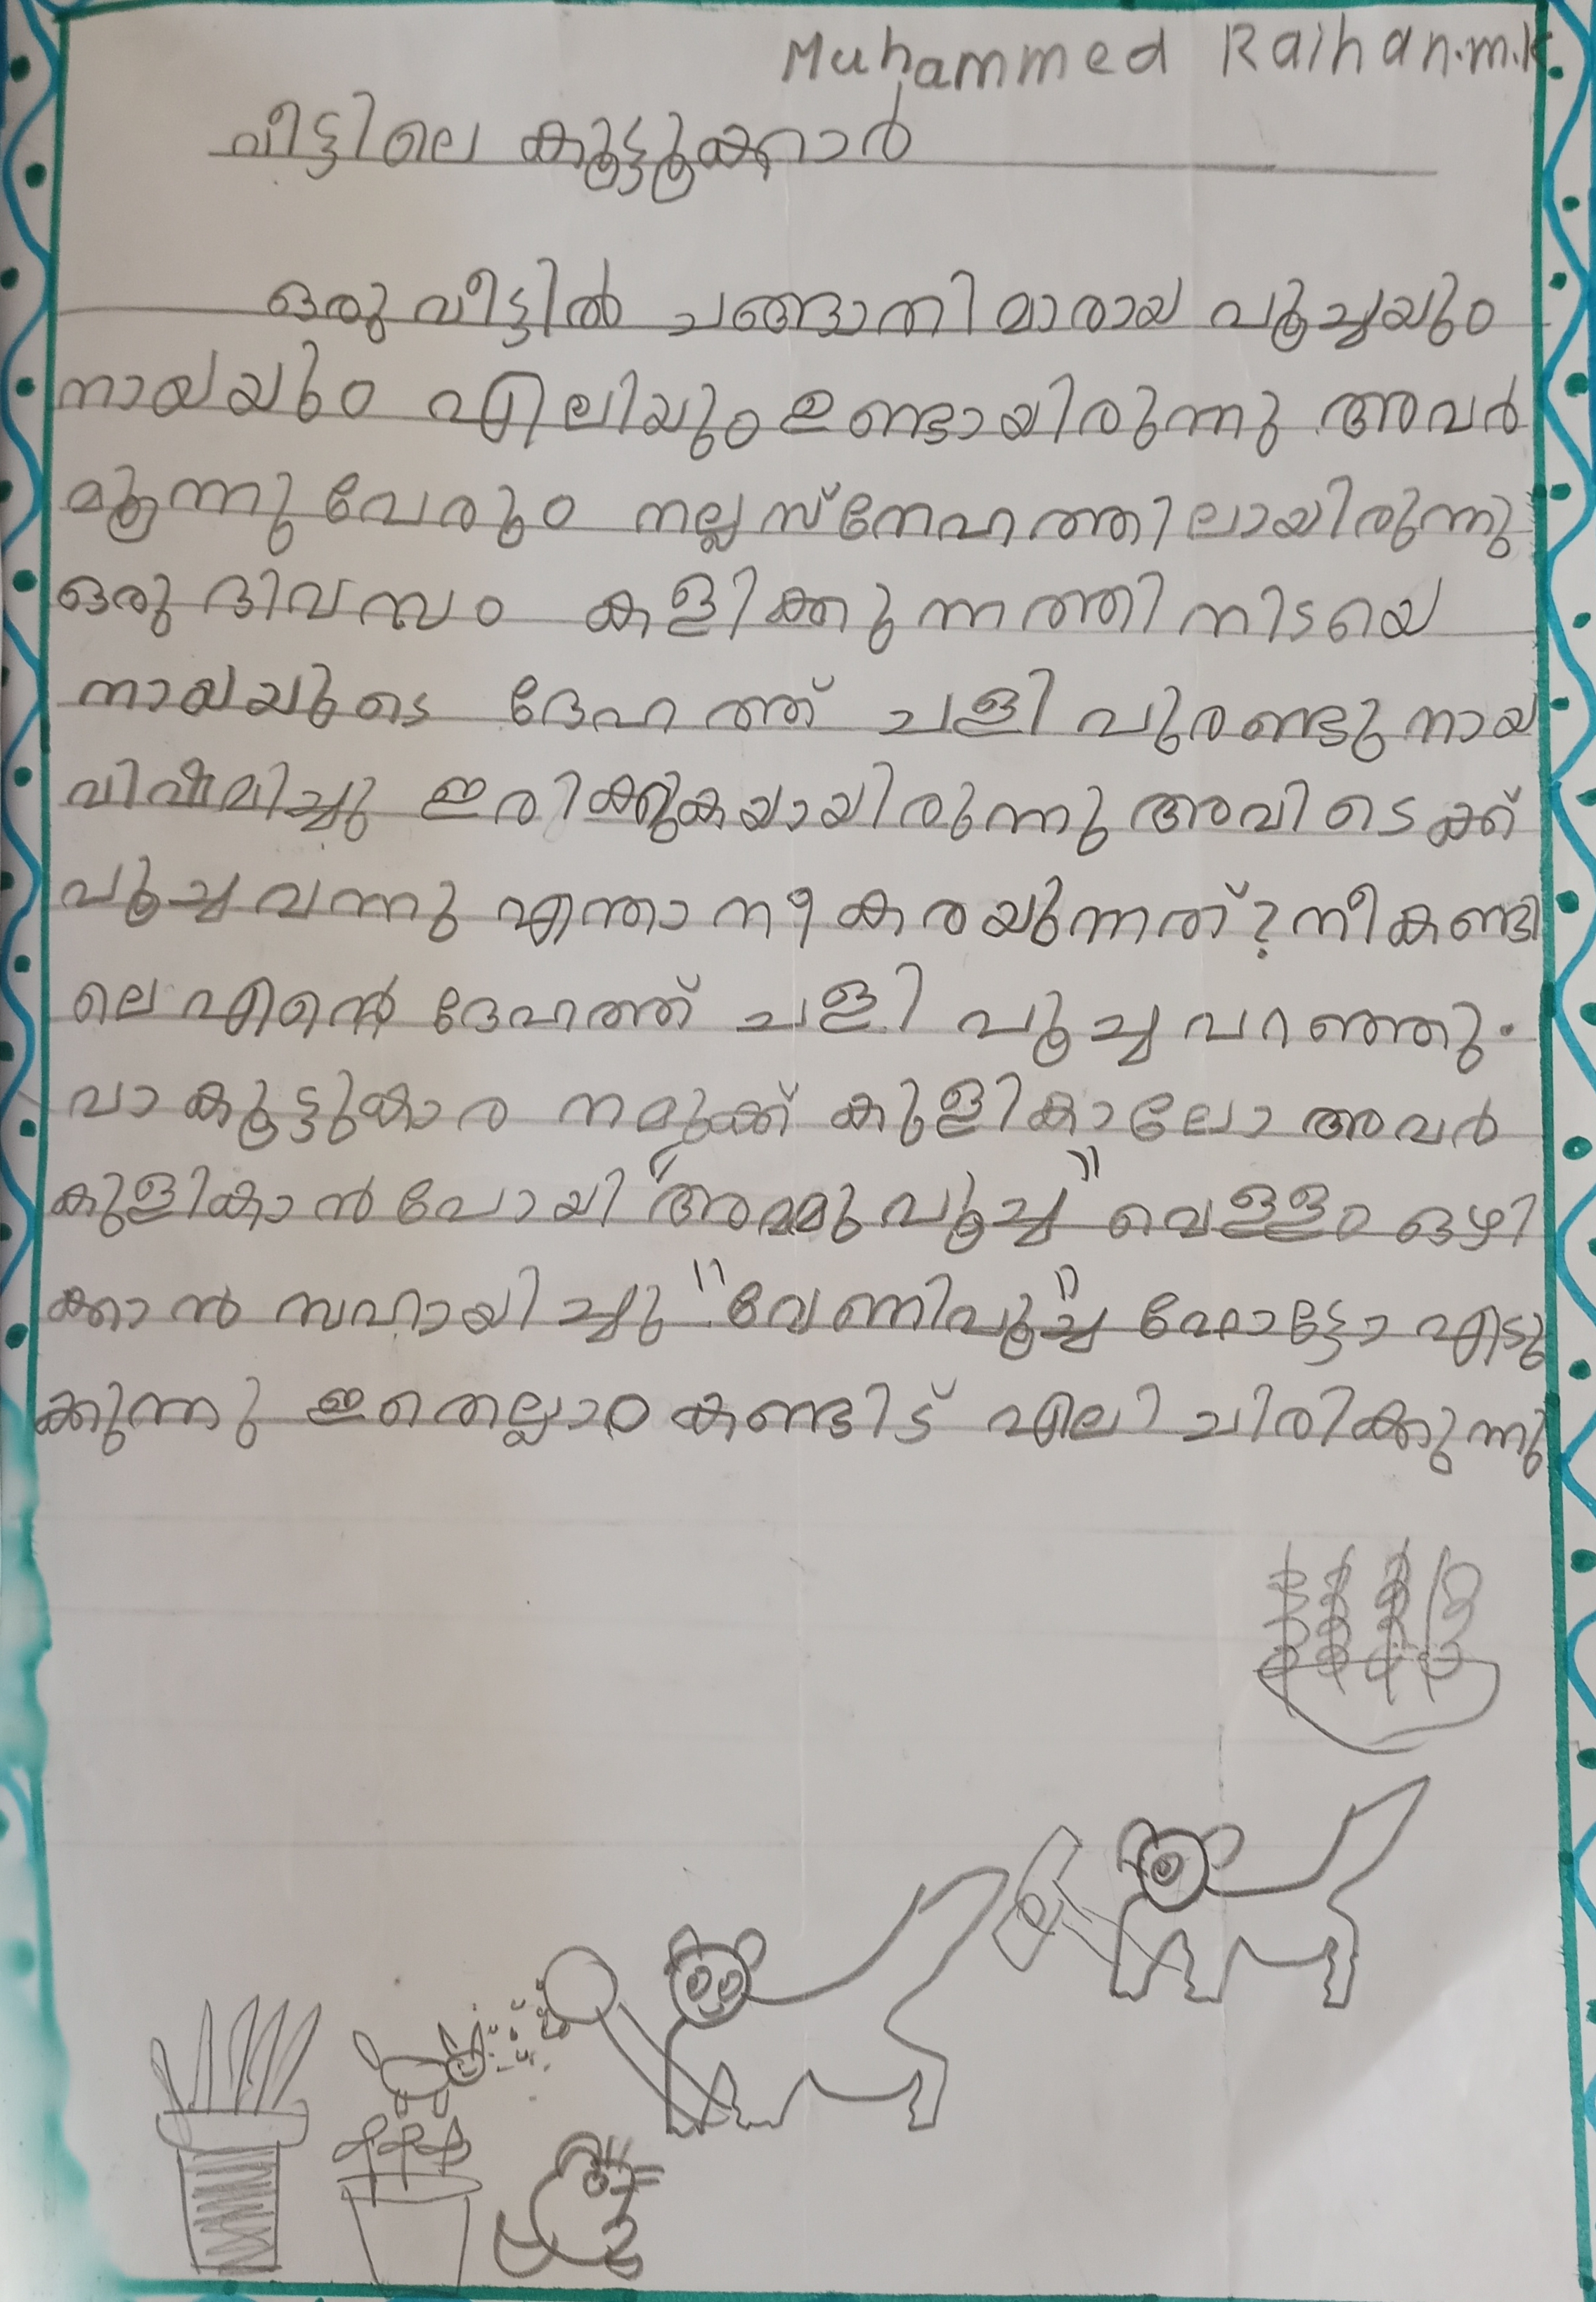 Muhammed Raihan.m.k
വീട്ടിലെ കൂട്ടൂക്കാർ
ഒരു വീട്ടിൽ ചങ്ങാതിമാരായ പൂച്ചയും
നായയും എലിയും ഉണ്ടായിരുന്നു അവർ
മൂന്നു പേരും നല്ല സ്നേഹത്തിലായിരുന്നു
ഒരു ദിവസം കളിക്കുന്നത്തിനിടയെ
നായയുടെ ദേഹത്ത് ചളി പുരണ്ടു നായ
വിഷമിച്ചു ഇരിക്കുകയായിരുന്നു അവിടെക്ക്
പൂച്ച വന്നു എന്താ നീ കരയുന്നത്? നീ കണ്ടി
ലെ എന്റെ ദേഹത്ത് ചളി പൂച്ച പറഞ്ഞു.
വാ കൂട്ടുകാര നമുക്ക് കുളികാലോ അവർ
കുളികാൻ പോയി "അമ്മു പൂച്ച" വെള്ളം ഒഴി
ക്കാൻ സഹായിച്ചു "വേണി പൂച്ച" ഫോട്ടോ എടു
ക്കുന്നു ഇതെല്ലാം കണ്ടിട് എലി ചിരിക്കുന്നു